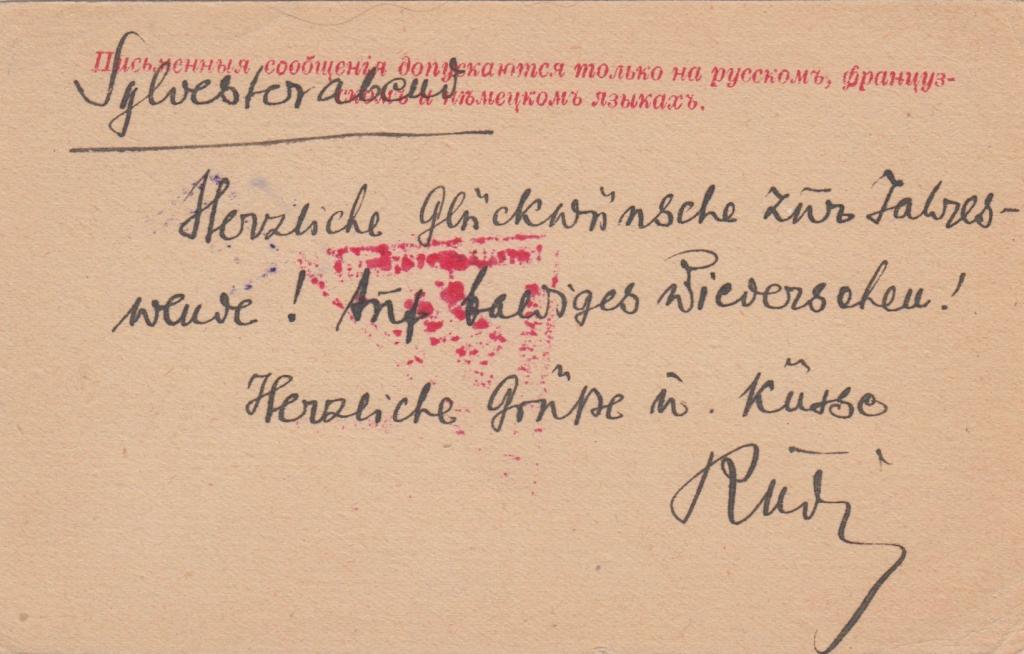 Письменныя сообщенія допускаются только на русскомъ, француз-
скомъ и нѣмецкомъ языкахъ.
Sylvesterabend
Herzliche Glückwünsche zur Jahres-
wende! Auf baldiges Wiedersehen!
Herzliche Grüße u. Küsse
Rudi